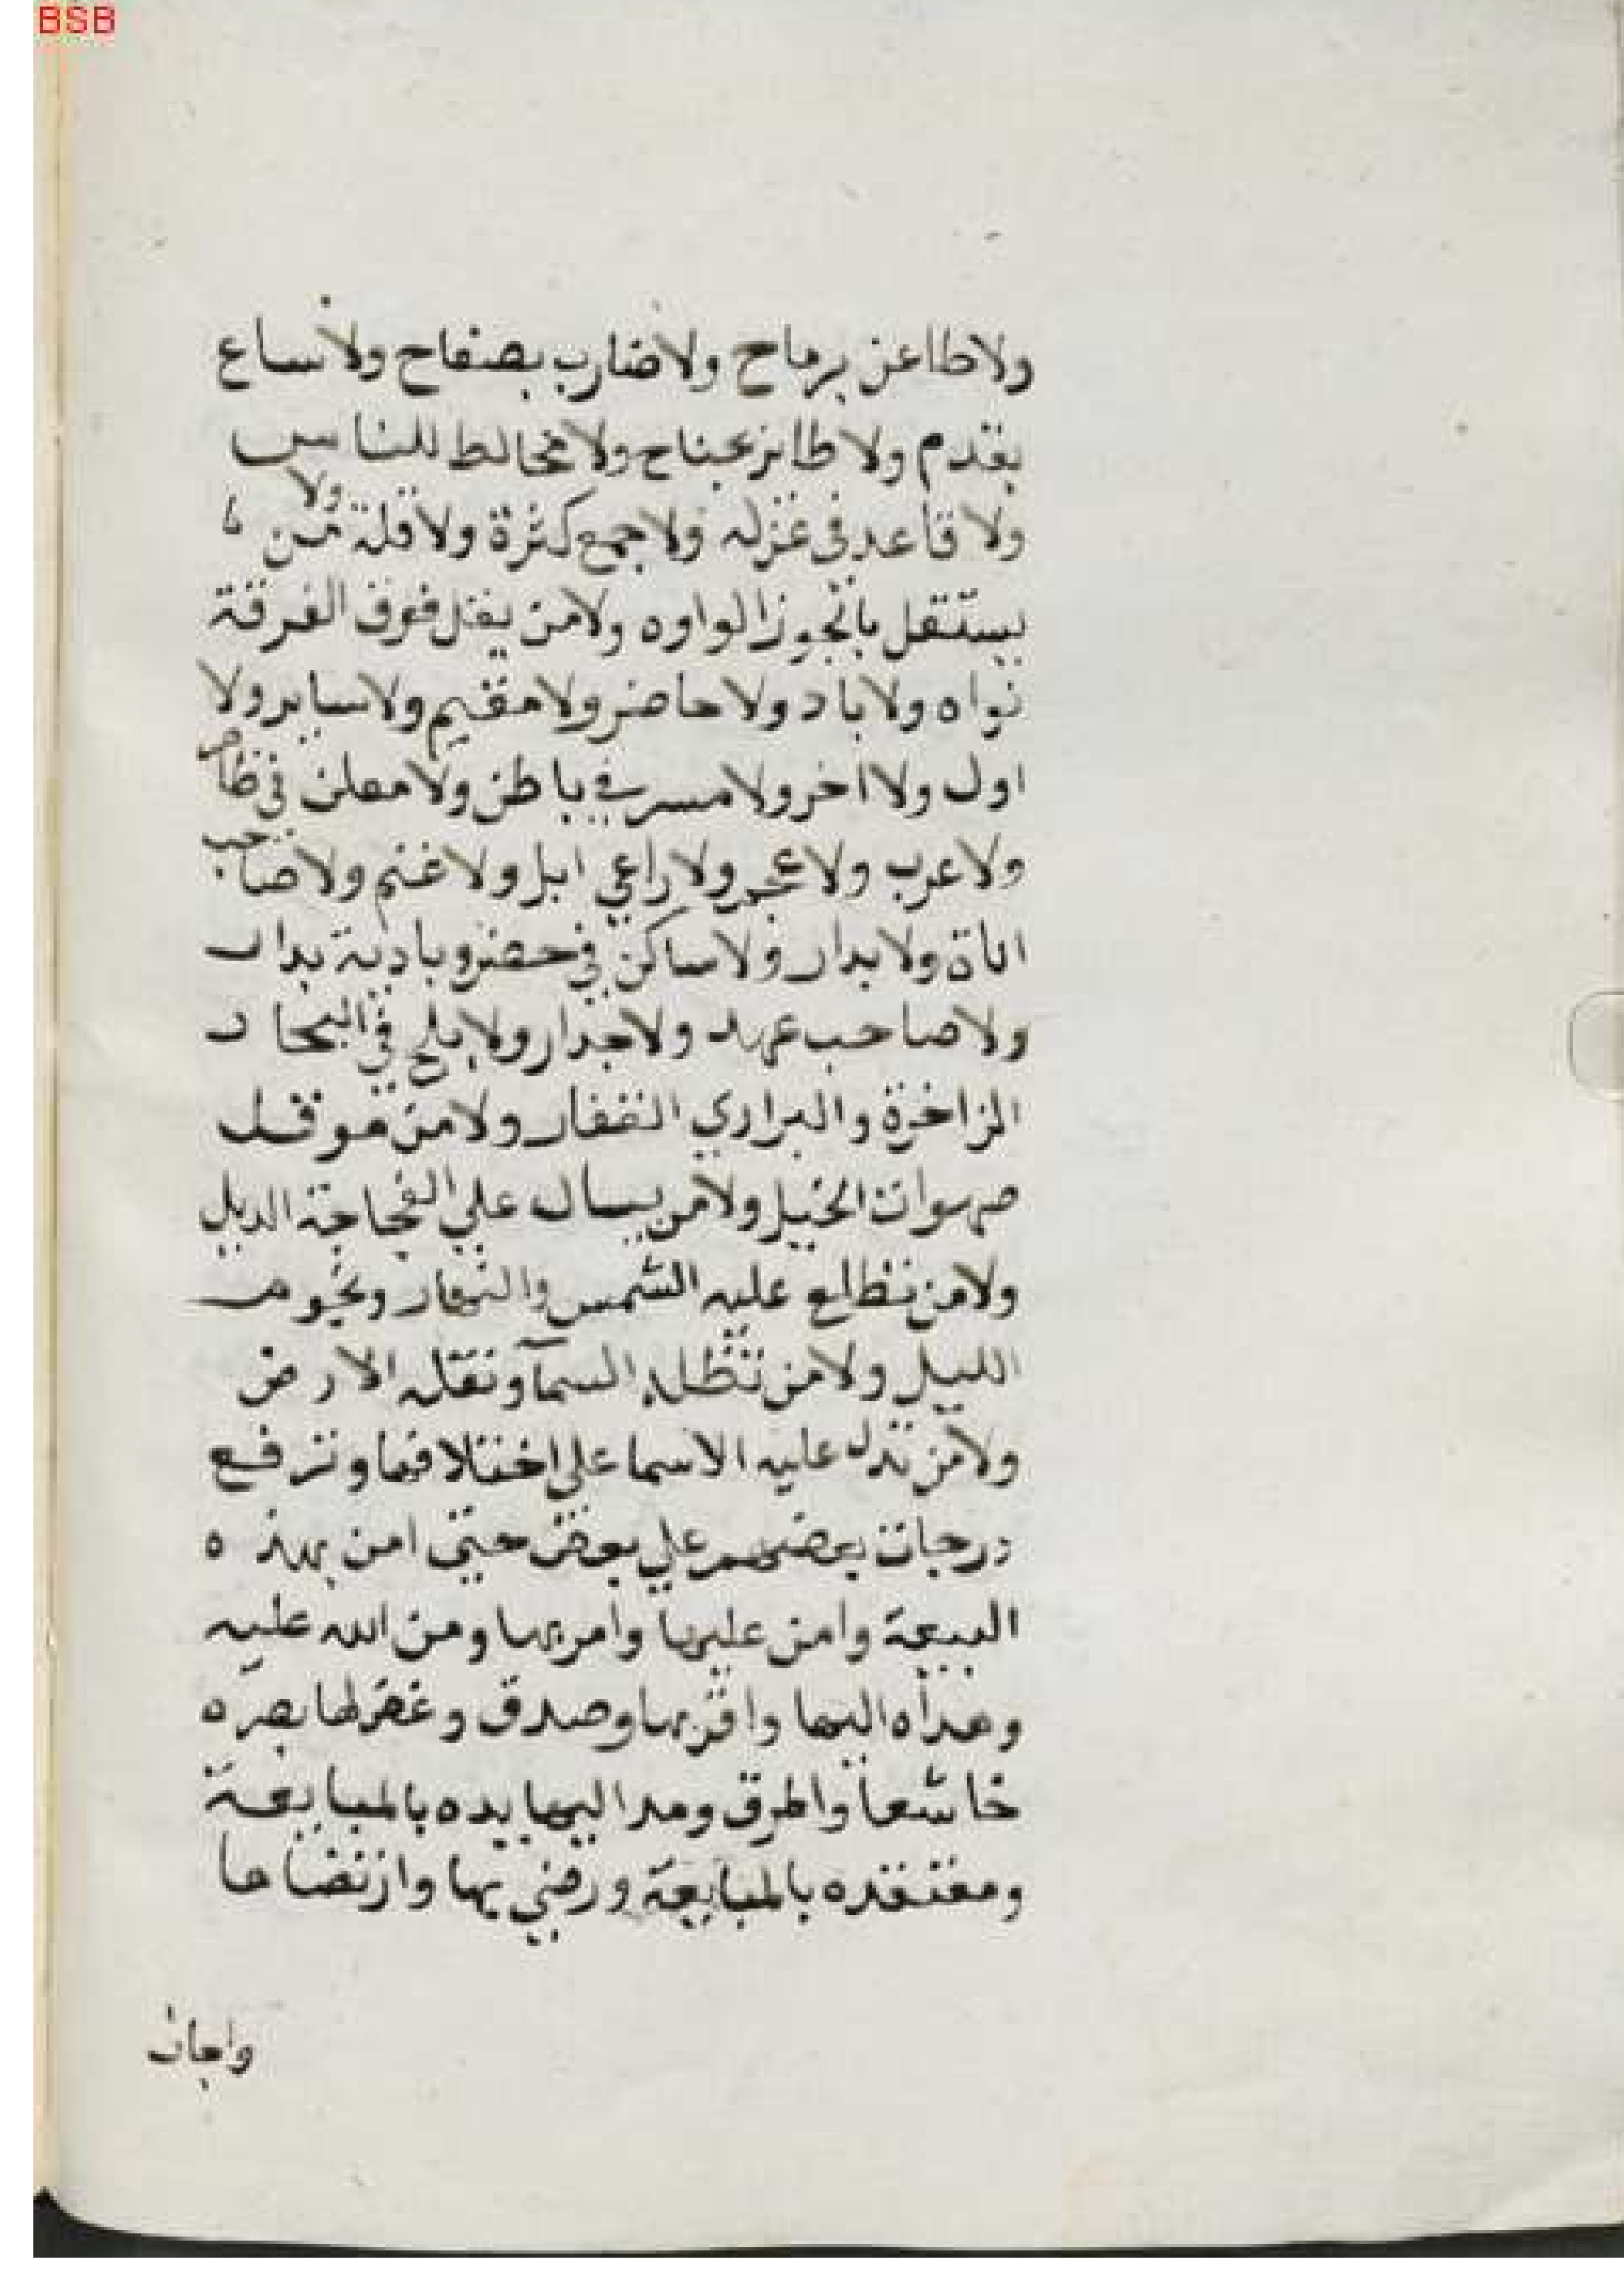 BSB
ولا طاعن برماح ولا ضارب بصفاح ولا ساع
بقدم ولا طاير بجناح ولا مخالط للناس
ولا قاعد في عزله ولا جمع كثرة ولا قلة ولا من
يستقل بالجوز الواوه ولا من يقل فوق الفرقة
نواه ولا باد ولا حاضر ولا مقيم ولا ساير ولا
اول ولا اخر ولا مسر في باطن ولا معلن في ظاهر
ولا عرب ولا عجم ولا راعي ابل ولا غنم ولا صاحب
اناة ولا بدار ولا ساكن في حضر وبادية بدار
ولا صاحب عهد ولا جدار ولا يلج في البحار
الزاخرة والبراري القفار ولا من موقل
صهوات الخيل ولا من يسال علي العجاجة الديل
ولا من تطلع عليه الشمس والنهار ونجوم
الليل ولا من تظله السمآ وتقله الارض
ولا من تدل عليه الاسما علي اختلافها وترفع
درجات بعضهم علي بعض حتي امن بهذه
البيعة وامن عليها وامر بها ومن الله عليه
وهداه اليها واقر بها وصدق وغض لها بصره
خاشعا واطرق ومد اليها يده بالمبايعة
ومعتقده بالمبايعة ورضي بها وارتضاها
واجاب